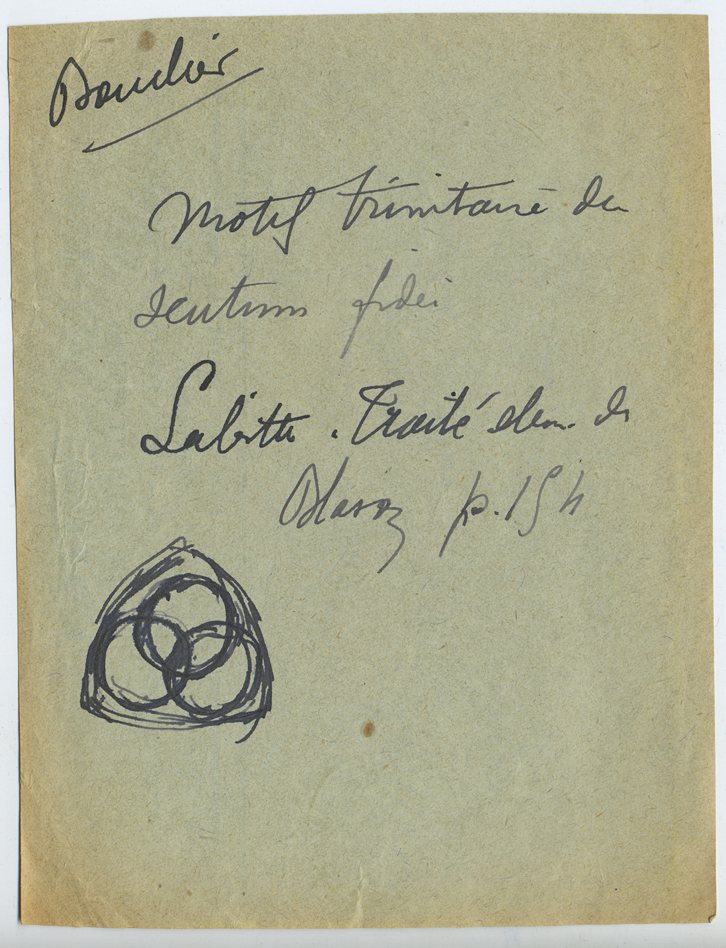 Bouclier
Motif trinitaire du
scutum fidei
Labitte. Traité elem. de
Blason p. 154